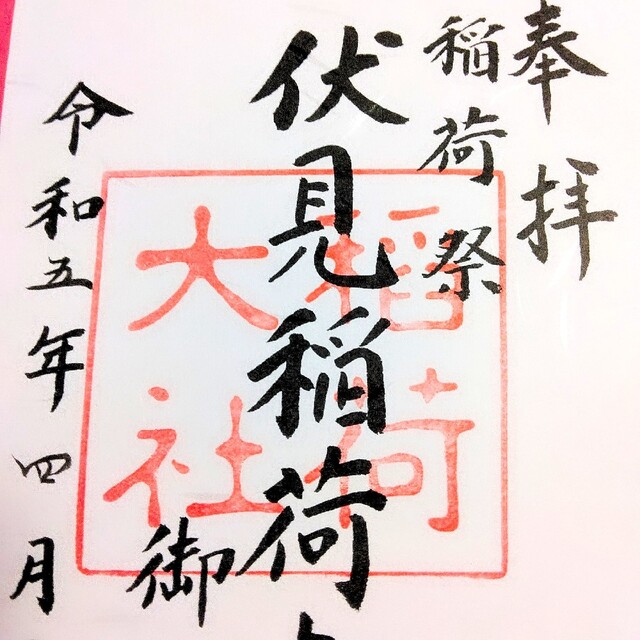 奉拝
稲荷祭
伏見稲荷
御
令和五年四月
稲荷
大社